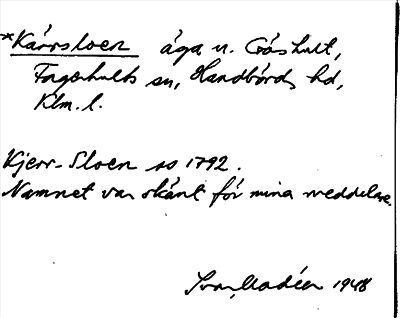 *Kärrsloen äga u. Gåshult,
Fagerhults sn, Handbörds hd,
Klm. l.
Kjerr-Sloen ss 1792.
Namnet var okänt för mina meddelare.
Ivar Modéer 1948